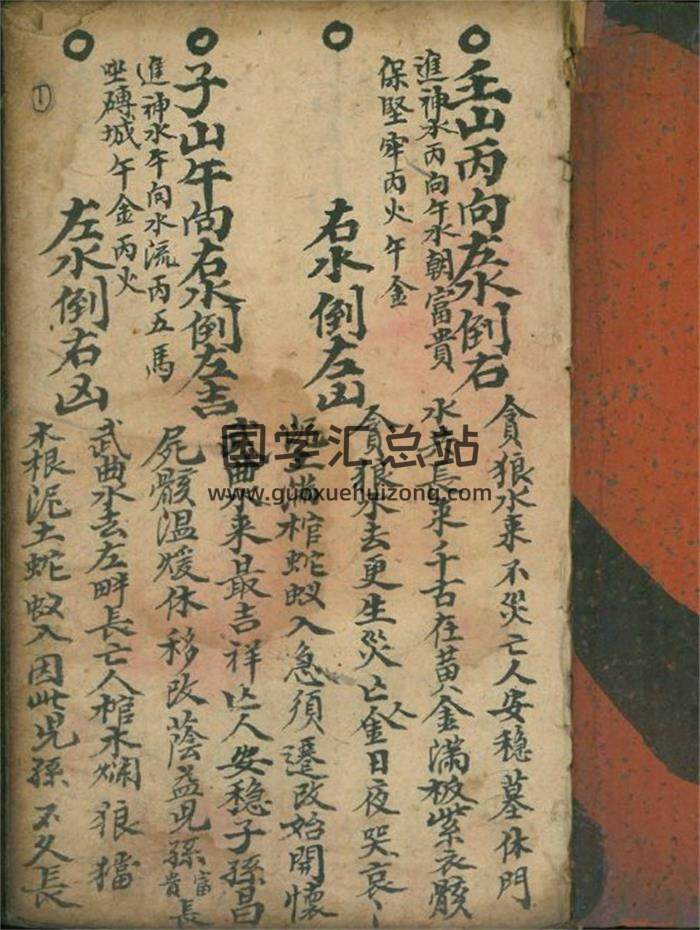 壬山丙向左水倒右
進神水丙向午水朝富貴
保堅牢丙火午金
貪狼水來不災亡人安穩墓休門
水來長來千古在黃金滿板紫衣骸
右水倒左凶
貪狼水去更生災亡人金日夜哭哀哀
滿棺蛇蚁入急須遷改始開懷
子山午向右水倒左吉
進神水午向水流丙五馬
坐磚城午金丙火
武曲水來最吉祥亡人安穩子孫昌
屍骸温煖休移改蔭益児孫富貴長
左水倒右凶
武曲水去左畔長亡人棺木爛狼
木根泥土蛇蚁入因此児孫不久長
①
国学汇总站
www.guoxuehuizong.com